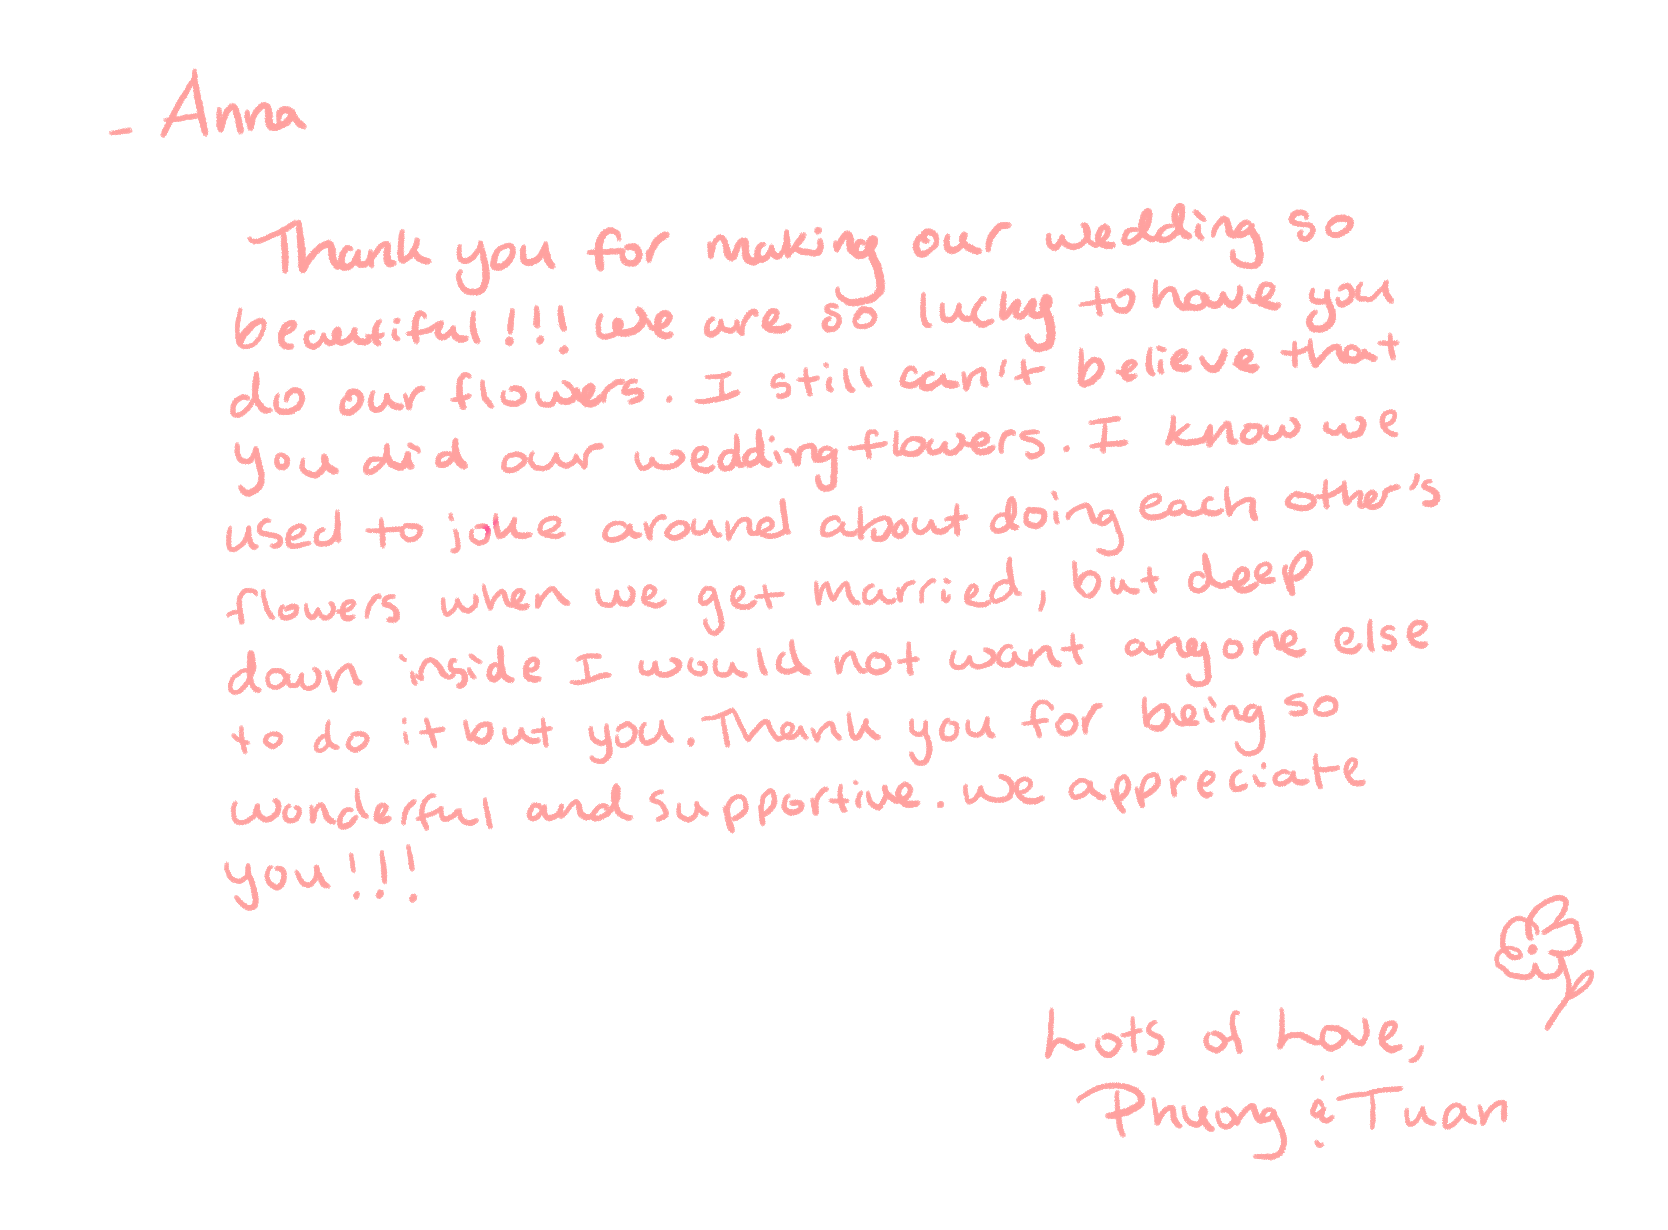 - Anna
Thank you for making our wedding so
beautiful!!! We are so lucky to have you
do our flowers. I still can't believe that
you did our wedding flowers. I know we
used to joke around about doing each other's
flowers when we get married, but deep
down inside I would not want anyone else
to do it but you. Thank you for being so
wonderful and supportive. We appreciate
you!!!
Lots of Love,
Phuong & Tuan